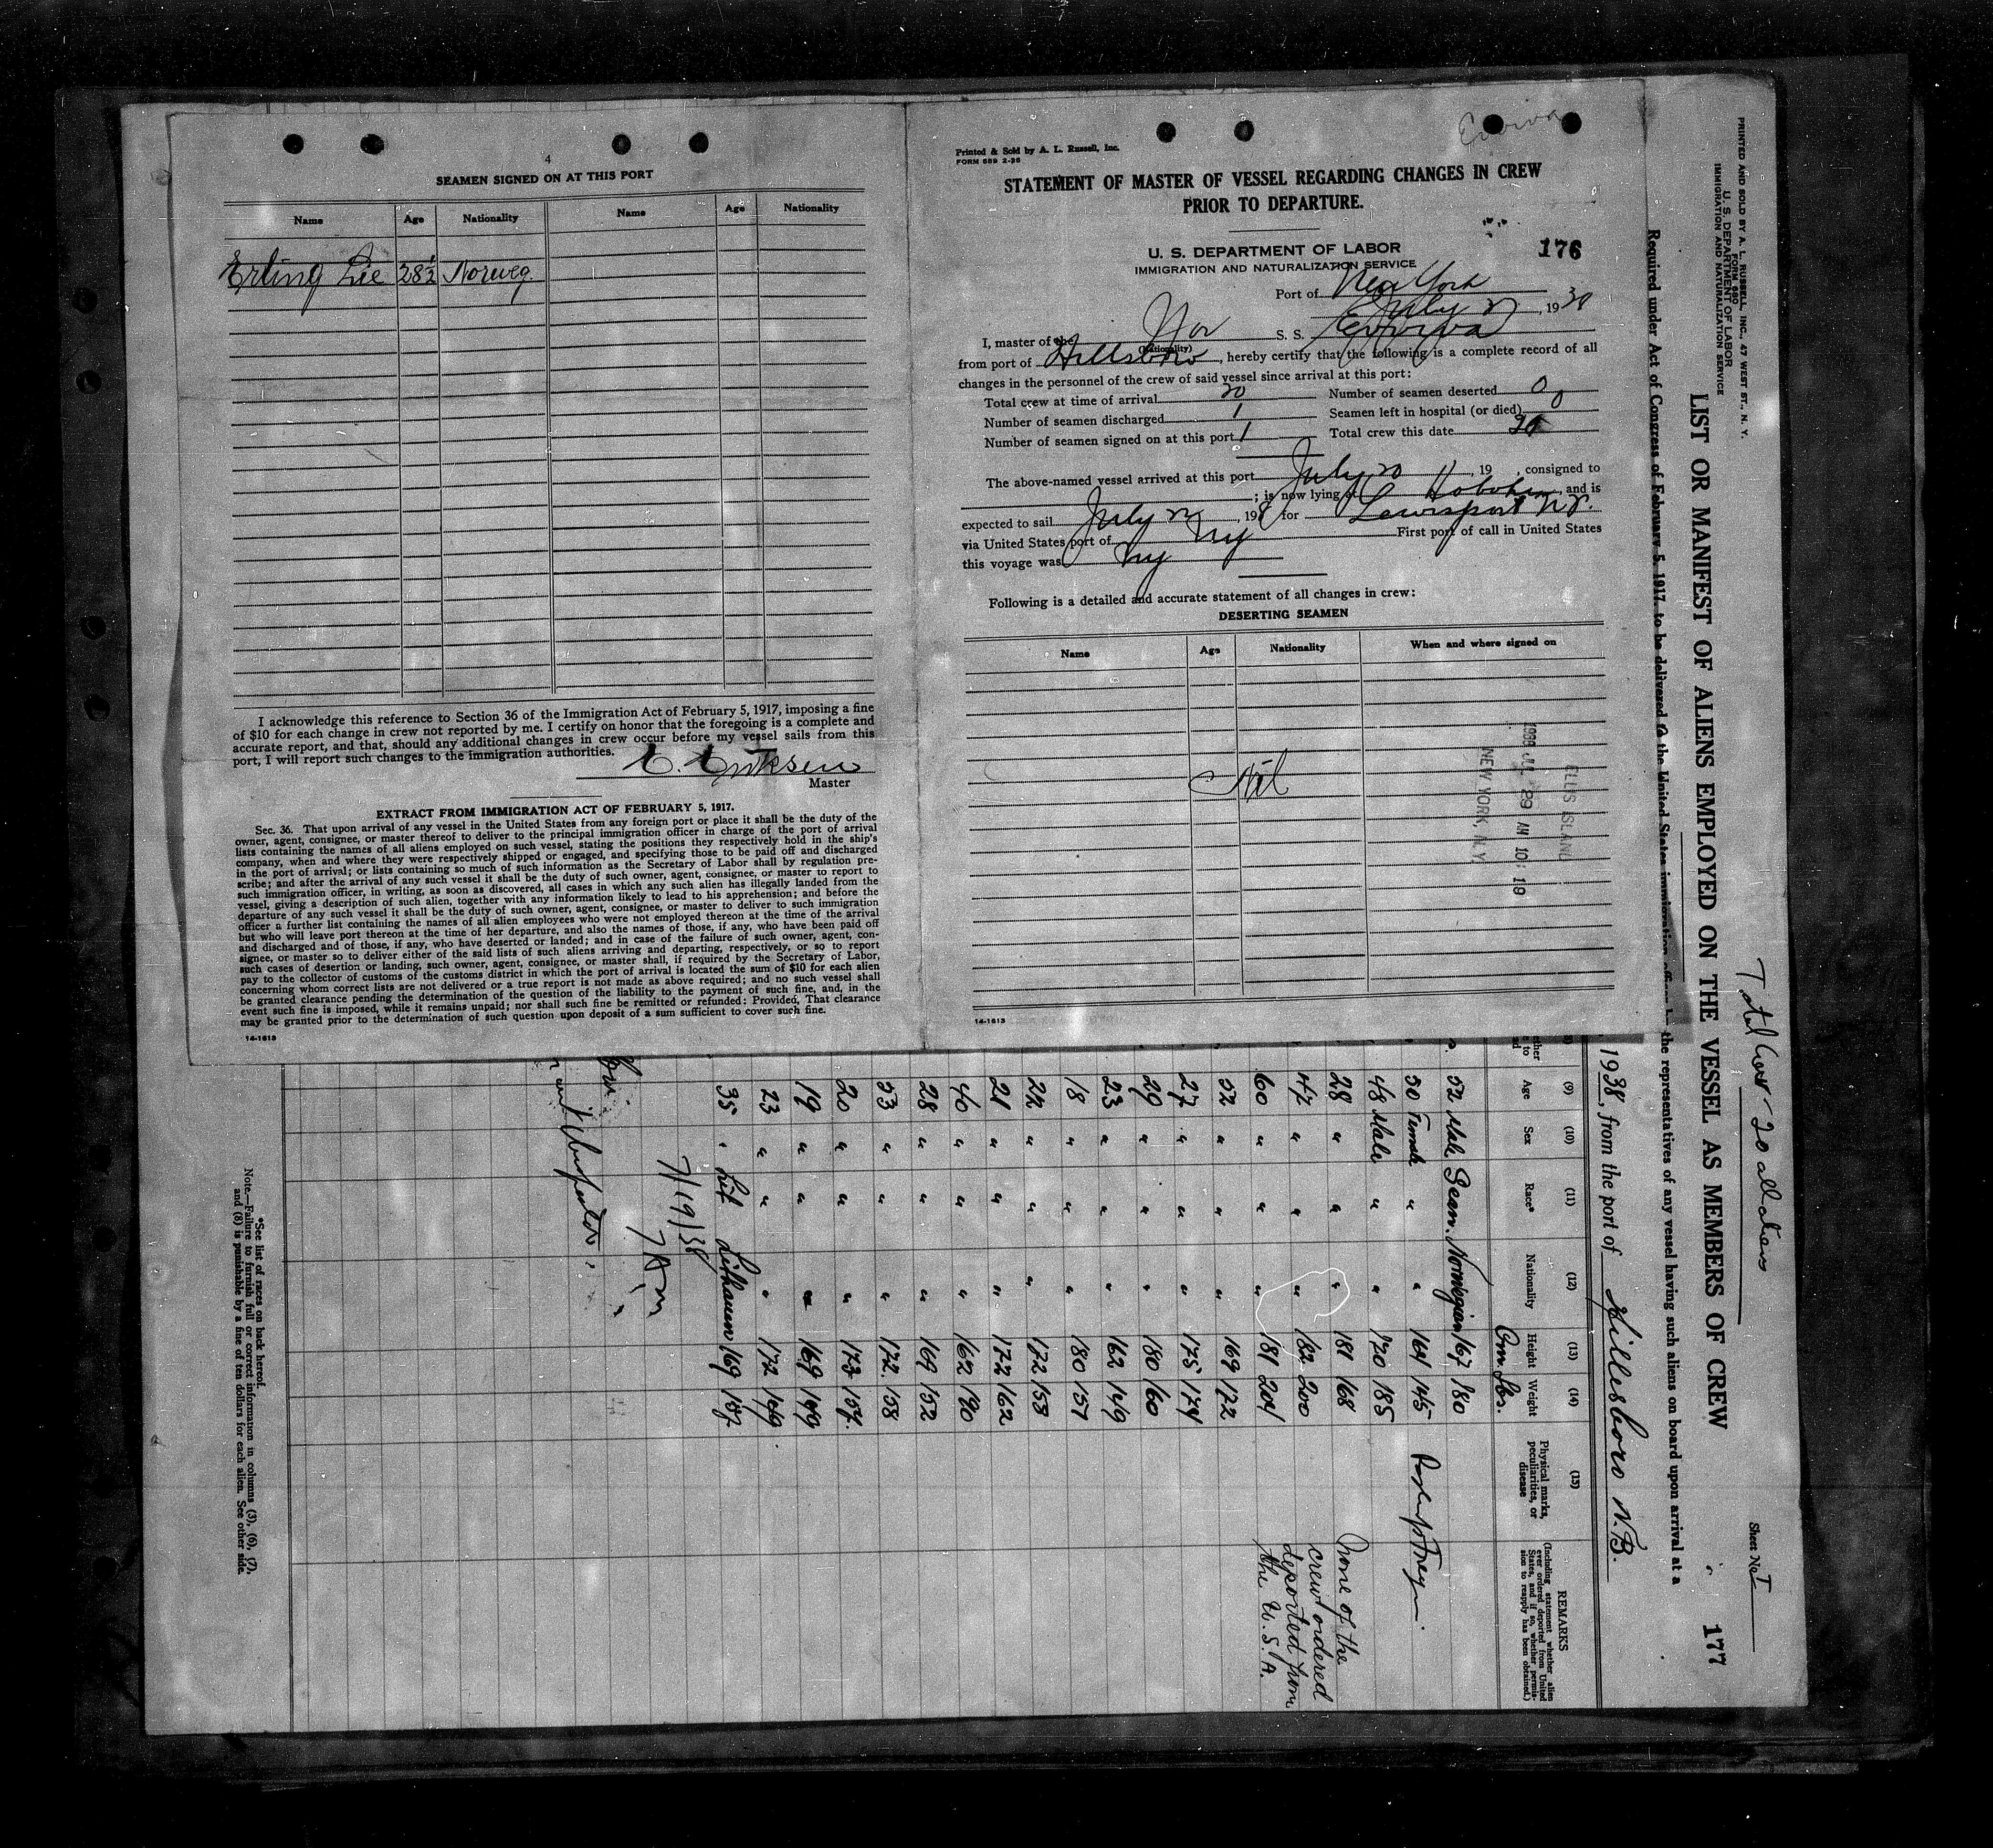 4
SEAMEN SIGNED ON AT THIS PORT
Name Age Nationality Name Age Nationality
Erling Lie 28½ Norweg.
I acknowledge this reference to Section 36 of the Immigration Act of February 5, 1917, imposing a fine
of $10 for each change in crew not reported by me. I certify on honor that the foregoing is a complete and
accurate report, and that, should any additional changes in crew occur before my vessel sails from this
port, I will report such changes to the immigration authorities.
E. Eriksen
Master
EXTRACT FROM IMMIGRATION ACT OF FEBRUARY 5, 1917.
Sec. 36. That upon arrival of any vessel in the United States from any foreign port or place it shall be the duty of the
owner, agent, consignee, or master thereof to deliver to the principal immigration officer in charge of the port of arrival
lists containing the names of all aliens employed on such vessel, stating the positions they respectively hold in the ship's
company, when and where they were respectively shipped or engaged, and specifying those to be paid off and discharged
in the port of arrival; or lists containing so much of such information as the Secretary of Labor shall by regulation pre-
scribe; and after the arrival of any such vessel it shall be the duty of such owner, agent, consignee, or master to report to
such immigration officer, in writing, as soon as discovered, all cases in which any such alien has illegally landed from the
vessel, giving a description of such alien, together with any information likely to lead to his apprehension; and before the
departure of any such vessel it shall be the duty of such owner, agent, consignee, or master to deliver to such immigration
officer a further list containing the names of all alien employees who were not employed thereon at the time of the arrival
but who will leave port thereon at the time of her departure, and also the names of those, if any, who have been paid off
and discharged and of those, if any, who have deserted or landed; and in case of the failure of such owner, agent, con-
signee, or master so to deliver either of the said lists of such aliens arriving and departing, respectively, or so to report
such cases of desertion or landing, such owner, agent, consignee, or master shall, if required by the Secretary of Labor,
pay to the collector of customs of the customs district in which the port of arrival is located the sum of $10 for each alien
concerning whom correct lists are not delivered or a true report is not made as above required; and no such vessel shall
be granted clearance pending the determination of the question of the liability to the payment of such fine, and, in the
event such fine is imposed, while it remains unpaid; nor shall such fine be remitted or refunded: Provided, That clearance
may be granted prior to the determination of such question upon deposit of a sum sufficient to cover such fine.
14-1613
Evviva
Printed & Sold by A. L. Russell, Inc.
FORM 689 2-36
STATEMENT OF MASTER OF VESSEL REGARDING CHANGES IN CREW
PRIOR TO DEPARTURE.
176
U. S. DEPARTMENT OF LABOR
IMMIGRATION AND NATURALIZATION SERVICE
Port of New York
July 21, 1938
I, master of the Nor S. S. Evviva
(Nationality)
from port of Hillsboro, hereby certify that the following is a complete record of all
changes in the personnel of the crew of said vessel since arrival at this port:
Total crew at time of arrival 20 Number of seamen deserted 0
Number of seamen discharged 1 Seamen left in hospital (or died) 0
Number of seamen signed on at this port 1 Total crew this date 20
The above-named vessel arrived at this port July 20, 19 , consigned to
; is now lying at Hoboken, and is
expected to sail July 21, 198 for Lewisport N.F.
via United States port of NY First port of call in United States
this voyage was NY
Following is a detailed and accurate statement of all changes in crew:
DESERTING SEAMEN
Name Age Nationality When and where signed on
Nil
ELLIS ISLAND
1938 JUL 29 AM 10:19
NEW YORK, N.Y.
14-1613
PRINTED AND SOLD BY A. L. RUSSELL, INC., 47 WEST ST., N. Y.
FORM 680
U. S. DEPARTMENT OF LABOR
IMMIGRATION AND NATURALIZATION SERVICE
Total Crew - 20 all aliens
Sheet No. I
LIST OR MANIFEST OF ALIENS EMPLOYED ON THE VESSEL AS MEMBERS OF CREW
177
Required under Act of Congress of February 5, 1917, to be delivered to the United States immigration officer by the representatives of any vessel having such aliens on board upon arrival at a
1938, from the port of Hillsboro N.B.
(9) (10) (11) (12) (13) (14) (15)
Age Sex Race* Nationality Height Weight Physical marks, peculiarities, or disease
REMARKS
(Including statement whether alien ever ordered deported from United States, and if so, whether permission to reapply has been obtained.)
Cm. Lbs.
52 Male Scan. Norwegian 167 180
50 Female " " 164 145
48 Male " " 170 185
28 " " " 181 168
47 " " " 182 200
60 " " " 181 204
52 " " " 169 172
27 " " " 175 174
29 " " " 180 160
23 " " " 162 149
18 " " " 180 157
22 " " " 172 153
21 " " " 172 162
40 " " " 162 190
28 " " " 169 152
53 " " " 172 158
20 " " " 173 154
19 " " " 169 149
23 " " " 172 149
35 " Lit Lithauen 169 187
None of the
crew ordered
deported from
the U.S.A.
7/19/38
*See list of races on back hereof.
Note.—Failure to furnish full or correct information in columns (3), (6), (7),
and (8) is punishable by a fine of ten dollars for each alien. See other side.